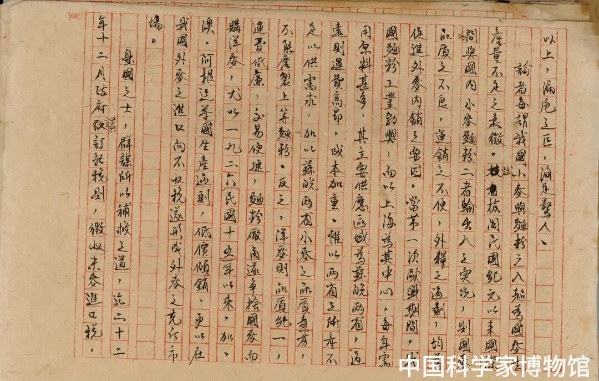 以上，漏卮之巨，洵足驚人。
論者每謂我國小麥與麵粉之入超為國麥
產量不足之表徵。試檢閱民國紀元以來國
間與國內小麥麵粉二者輸出入之實況，則國
品質之不良，運銷之不便，外糧之過剩，均
促進外麥內銷之要因。當第一次歐戰期間，
國麵粉工業勃興，而以上海為其中心，每年需
用原料甚多，其主要供應區域為蘇皖兩省，過
遠則運費高昂，成本加重。惟以兩省之所產不
足以供需求，加以蘇皖兩省小麥之品質
不能磨製上等麵粉。反之，洋麥則品質純一，
運費低廉，交易便捷，麵粉廠商遂爭捨國麥而
購洋麥，尤以一九二六民國十五年以來，加、
澳、阿根廷等國生產過剩，低價傾銷，更以在
我國外麥之進口向不收稅遂形成外麥之充斥市
場。
與國之士，群謀所以補救之道，迨二十二
年十二月政府改訂稅則，徵收米麥進口稅，
中国科学家博物馆